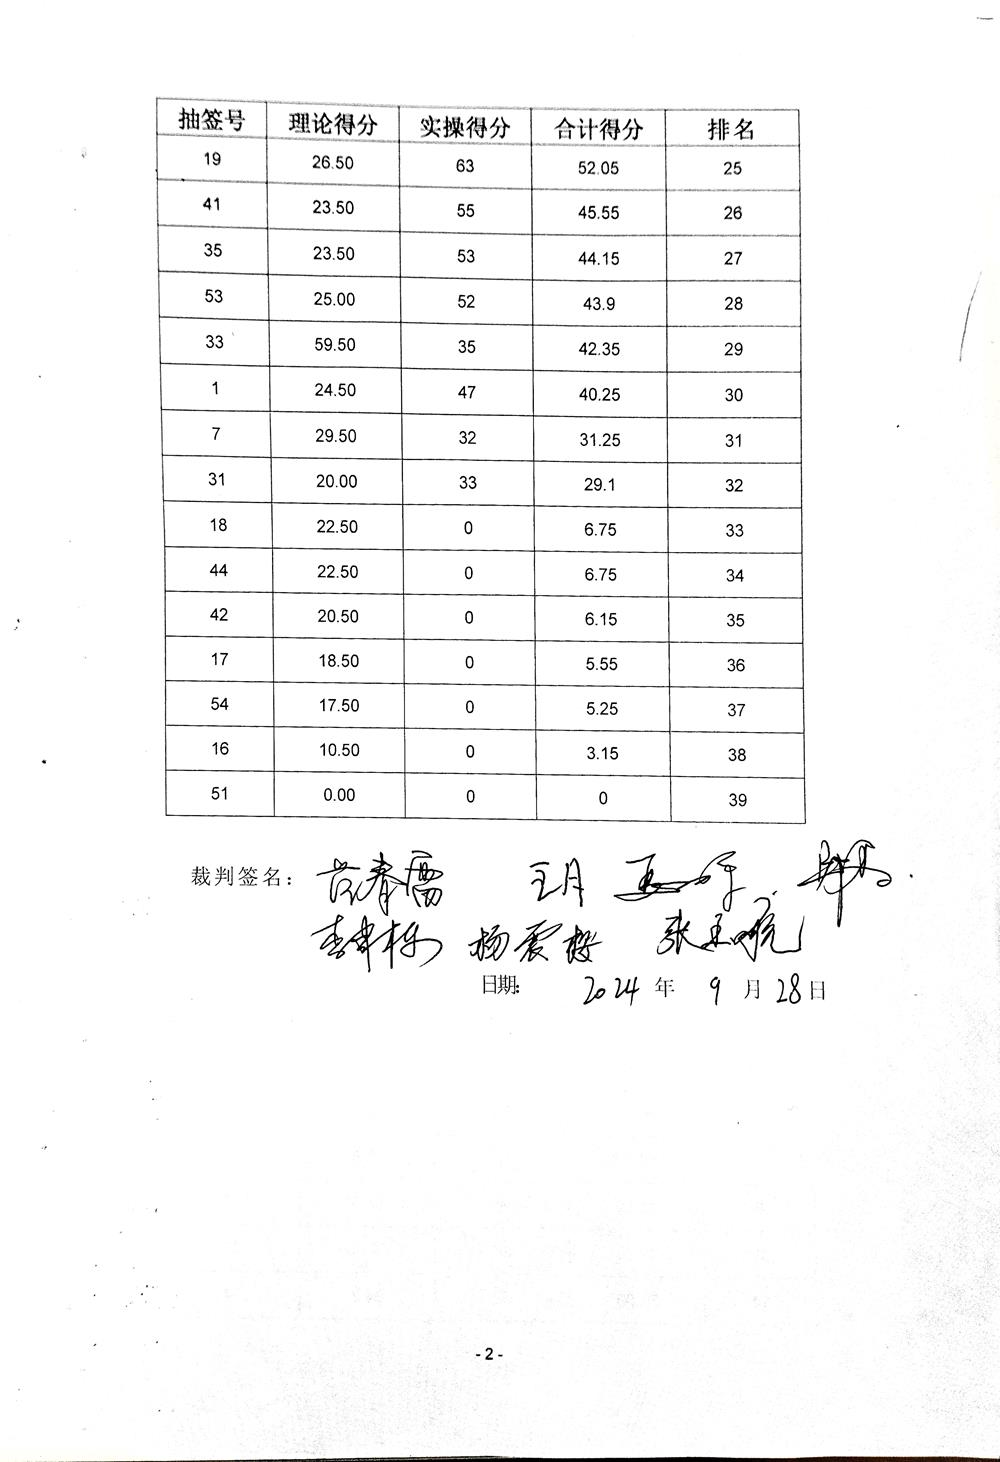 抽签号 理论得分 实操得分 合计得分 排名
19 26.50 63 52.05 25
41 23.50 55 45.55 26
35 23.50 53 44.15 27
53 25.00 52 43.9 28
33 59.50 35 42.35 29
1 24.50 47 40.25 30
7 29.50 32 31.25 31
31 20.00 33 29.1 32
18 22.50 0 6.75 33
44 22.50 0 6.75 34
42 20.50 0 6.15 35
17 18.50 0 5.55 36
54 17.50 0 5.25 37
16 10.50 0 3.15 38
51 0.00 0 0 39
裁判签名： 范春雷 王月
杨震
日期: 2024 年 9 月 28 日
- 2 -